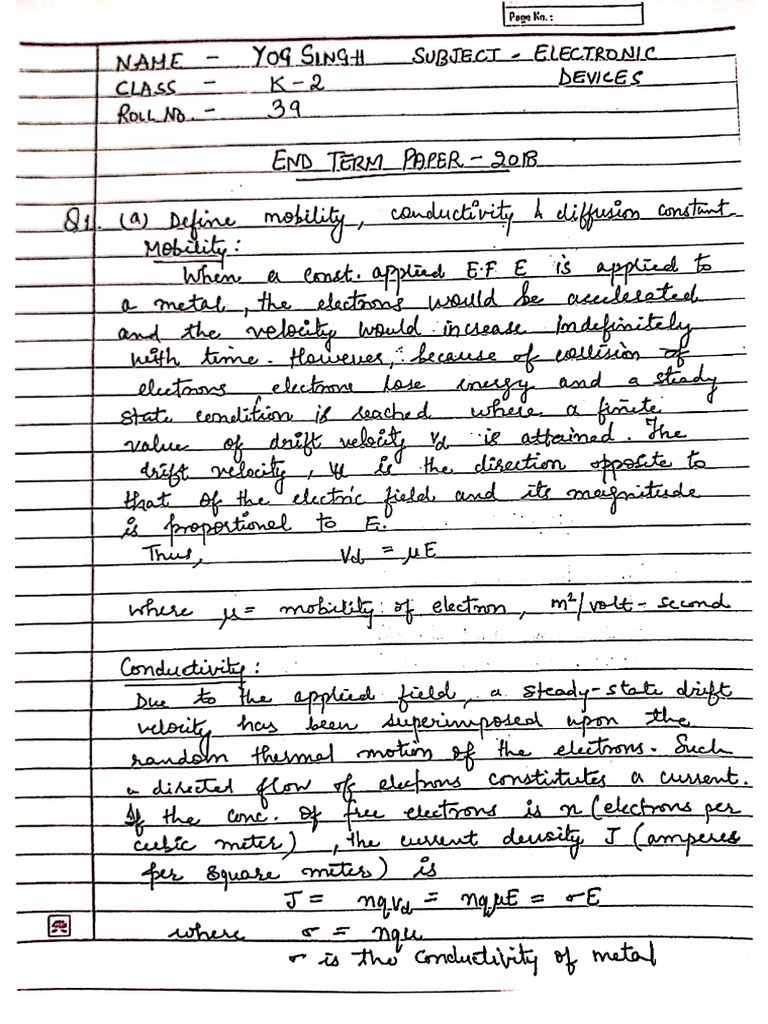 Page No.:
NAME - YOG SINGH SUBJECT - ELECTRONIC
CLASS - K-2 DEVICES
ROLL NO. - 39
END TERM PAPER - 2018
Q1. (a) Define mobility, conductivity & diffusion constant
Mobility:
When a const. applied E.F E is applied to
a metal, the electrons would be accelerated
and the velocity would increase indefinitely
with time. However, because of collision of
electrons, electrons lose energy and a steady
state condition is reached where a finite
value of drift velocity Vd is attained. The
drift velocity, Vd is the direction opposite to
that of the electric field and its magnitude
is proportional to E.
Thus, Vd = μE
where μ = mobility of electron, m²/volt-second
Conductivity:
Due to the applied field, a steady-state drift
velocity has been superimposed upon the
random thermal motion of the electrons. Such
a directed flow of electrons constitutes a current.
If the conc. of free electrons is n (electrons per
cubic meter), the current density J (amperes
per square meter) is
J = nqVd = nqμE = σE
where σ = nqμ
σ is the conductivity of metal